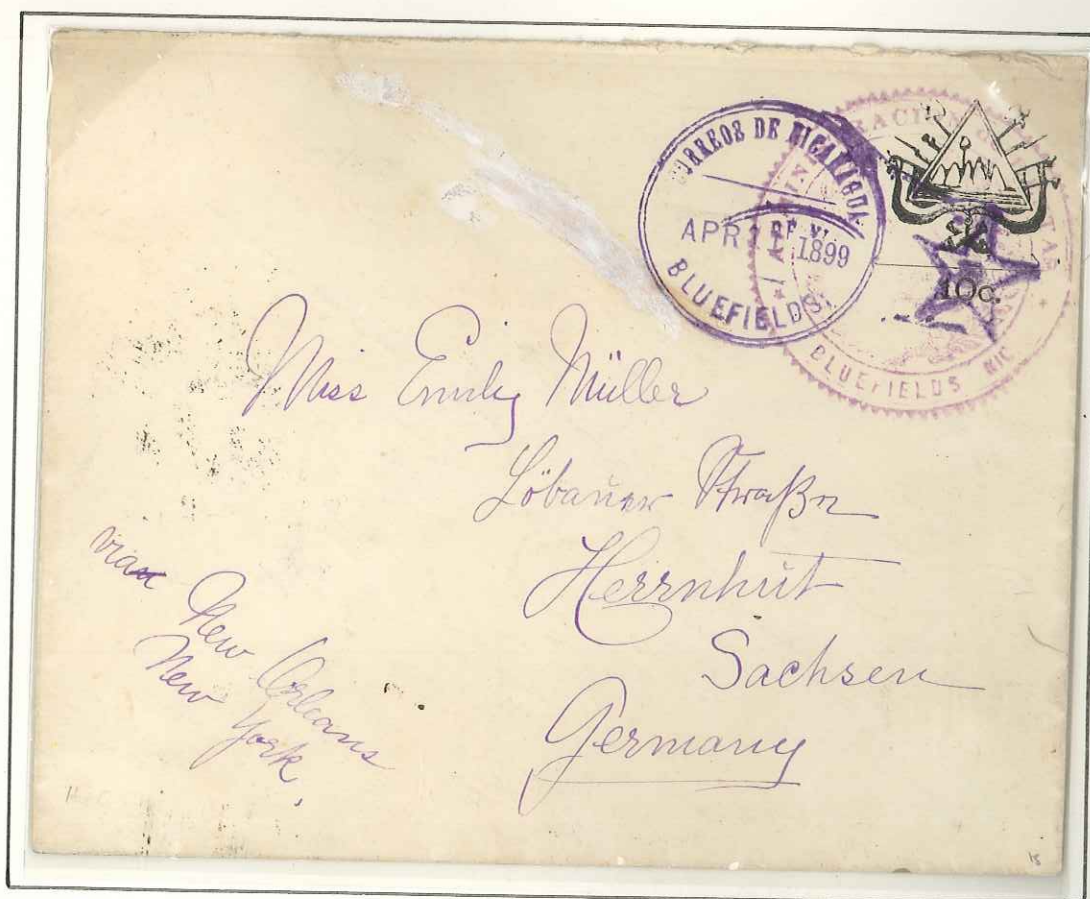 CORREOS DE NICARAGUA
APR 1899
BLUEFIELDS.
BLUEFIELDS NIC
10c.
Miss Emily Müller
Löbauer Straße
Herrnhut
Sachsen
Germany
via
New Orleans
New York,